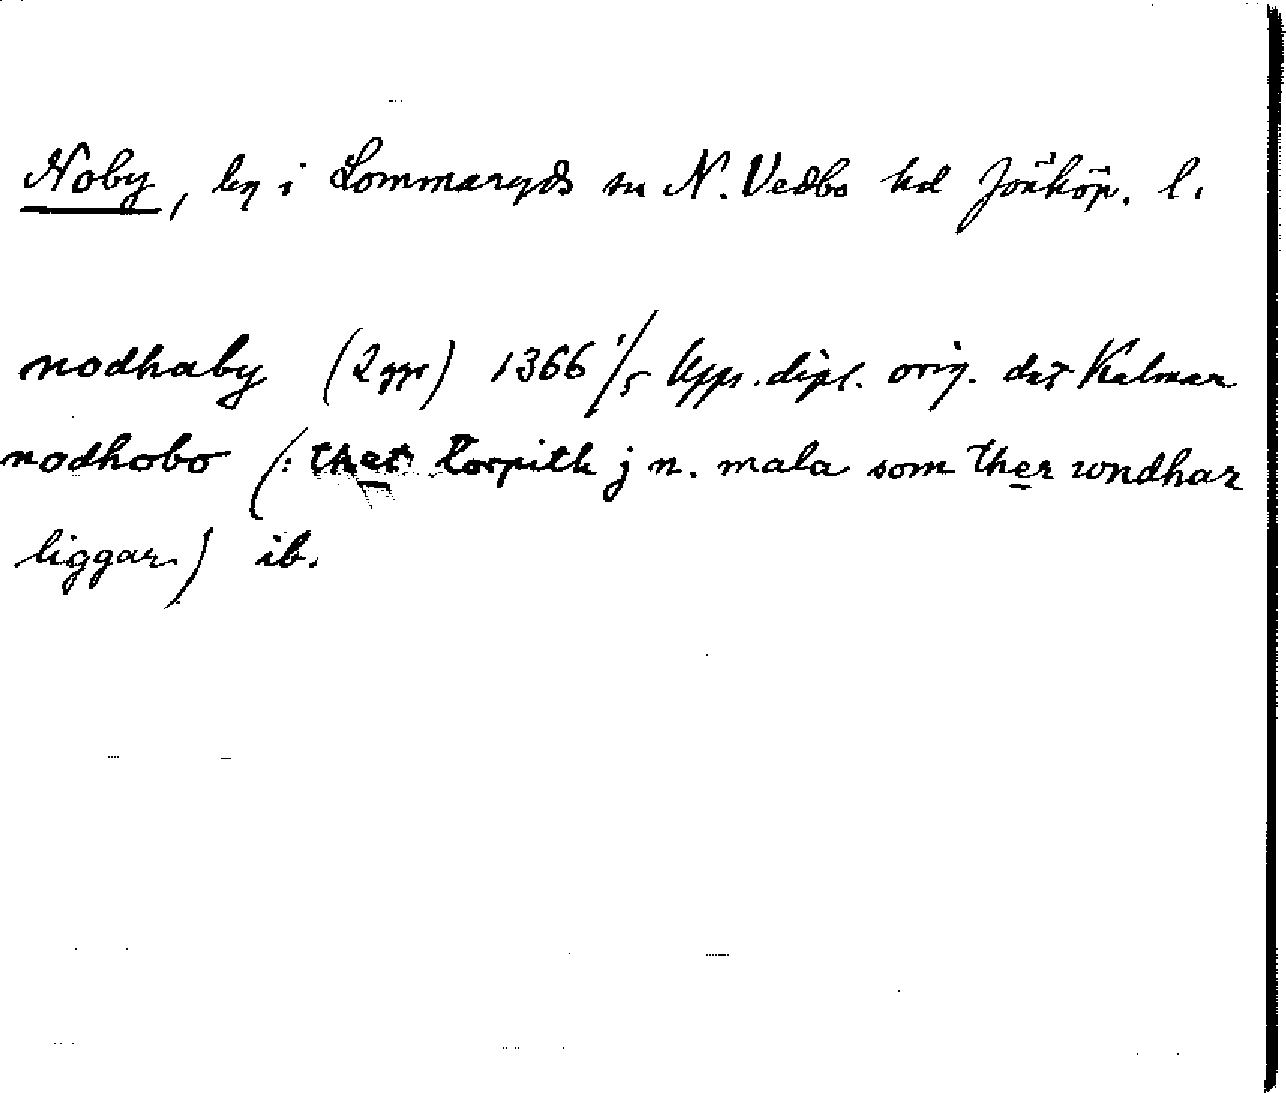 Noby, by i Lommaryds sn N. Vedbo hd Jönköp. l.
nodhaby (2 ggr) 1366 1/5 Upps. dipl. orig. dat Kalmar
nodhobo (: thet torpith j n. mala som ther wndhar
liggar) ib.